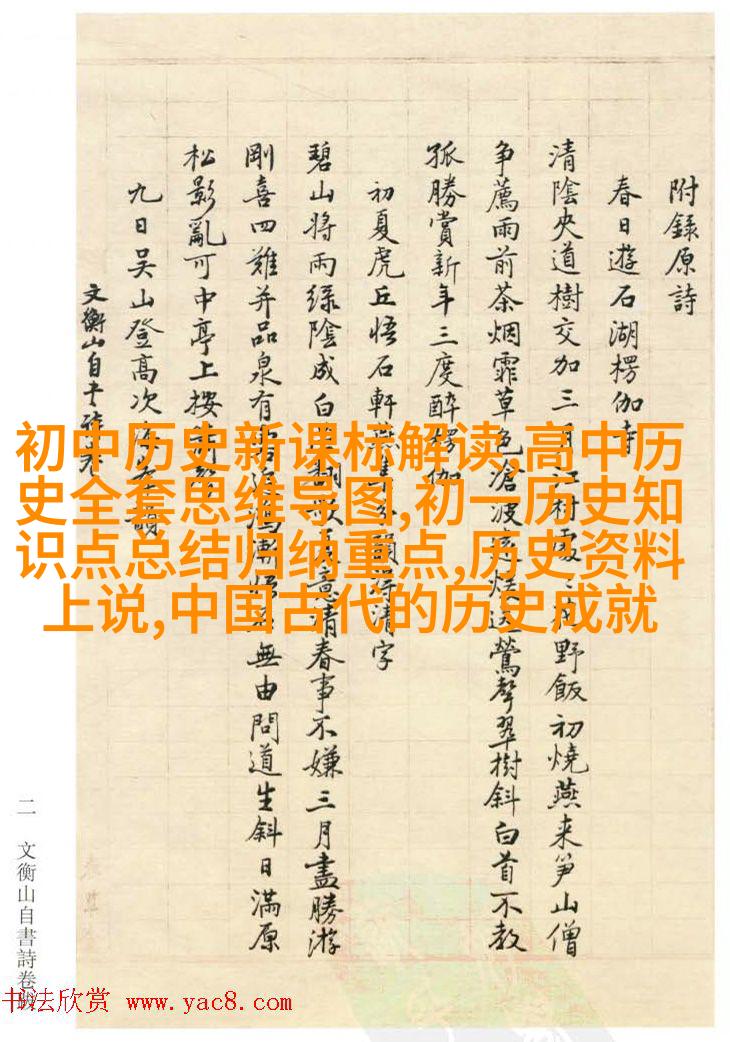 附錄原詩
春日遊石湖楞伽寺
清陰夾道樹交加三月江村處〻花野飯初燒燕来笋山僧
争薦雨前茶烟霏草色滄波遠
鶯聲翠樹斜白首不教
孤勝賞新年三度醉楞伽
初夏虎丘悟石軒燕集分韻得清字
碧山將雨綠陰成白
意清春事不嫌三月盡勝游
剛喜四難并品泉有
無由問道生斜日滿原
松影亂可中亭上按
九日吳山登高次
韻
文衡山自書詩卷
初中历史新课标解读,高中历
史全套思维导图,初一历史知
识点总结归纳重点,历史资料
上说,中国古代的历史成就
二 文衡山自書詩卷跋
书法欣赏 www.yac8.com